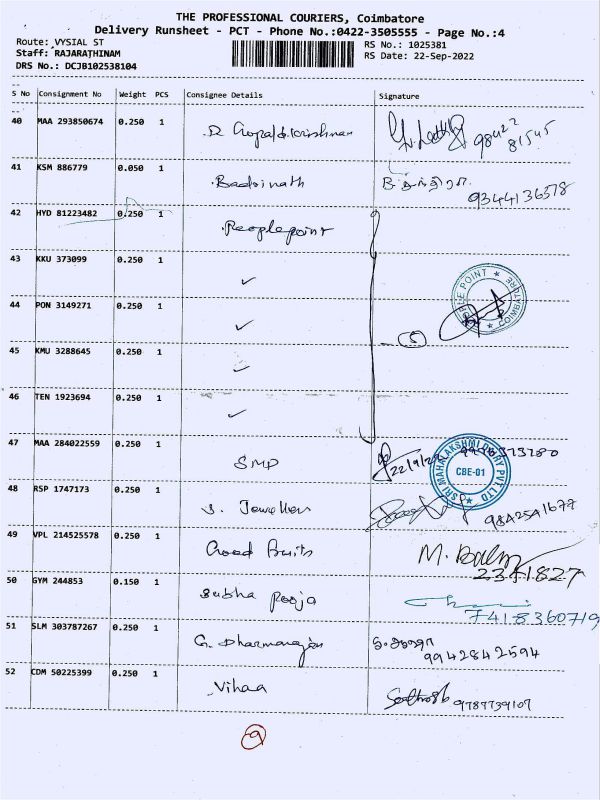 THE PROFESSIONAL COURIERS, Coimbatore
Delivery Runsheet - PCT - Phone No.:0422-3505555 - Page No.:4
Route: VYSIAL ST
RS No.: 1025381
Staff: RAJARATHINAM
RS Date: 22-Sep-2022
DRS No.: DCJB102538104
S No Consignment No Weight PCS Consignee Details Signature
40 MAA 293850674 0.250 1 D Gopalakrishnan 98422
81545
41 KSM 886779 0.050 1 Badrinath 9344136578
42 HYD 81223482 0.250 1 Peoplepoint
43 KKU 373099 0.250 1 ✓
PEOPLE POINT ★ COIMBATORE ★
44 PON 3149271 0.250 1 ✓
5
45 KMU 3288645 0.250 1 ✓
46 TEN 1923694 0.250 1 ✓
47 MAA 284022559 0.250 1 SMD 22/9/22
SRI MAHALAKSHMI DAIRY PVT LTD
CBE-01
48 RSP 1747173 0.250 1 S. Jewellers 9842541677
49 VPL 214525578 0.250 1 Good Fruits M. Balm
2341827
50 GYM 244853 0.150 1 Subha Pooja
7418360719
51 SLM 303787267 0.250 1 G. Dharmarajan
9942842594
52 CDM 50225399 0.250 1 Vihaa 9787739107
9